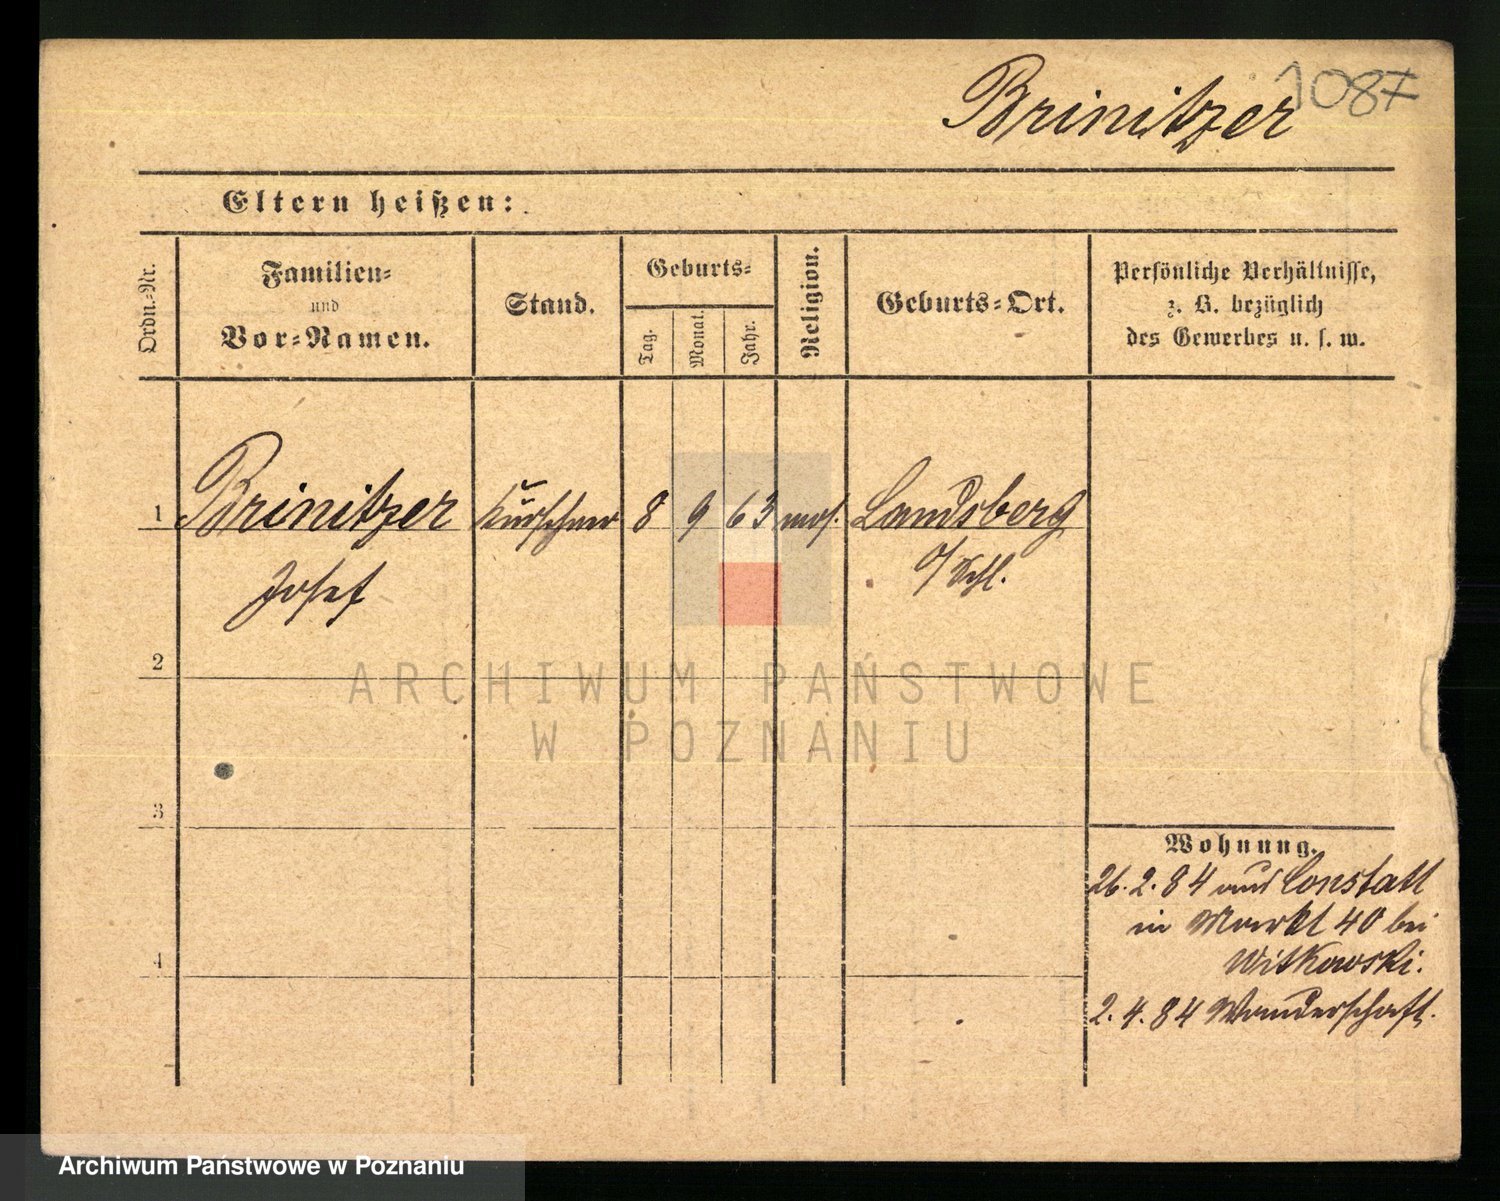 1087
Brinitzer
Eltern heißen:
Ordn.-Nr.
Familien-
und
Vor-Namen.
Stand.
Geburts-
Tag.
Monat.
Jahr.
Religion.
Geburts-Ort.
Persönliche Verhältnisse,
z. B. bezüglich
des Gewerbes u. s. w.
1 Brinitzer Kürschner 8 9 63 mos. Landsberg
Josef O/Schl.
2
ARCHIWUM PAŃSTWOWE
W POZNANIU
3
Wohnung.
26.2.84 aus Constatt
in Markt 40 bei
Witkowski.
4
2.4.84 Wanderschaft.
Archiwum Państwowe w Poznaniu